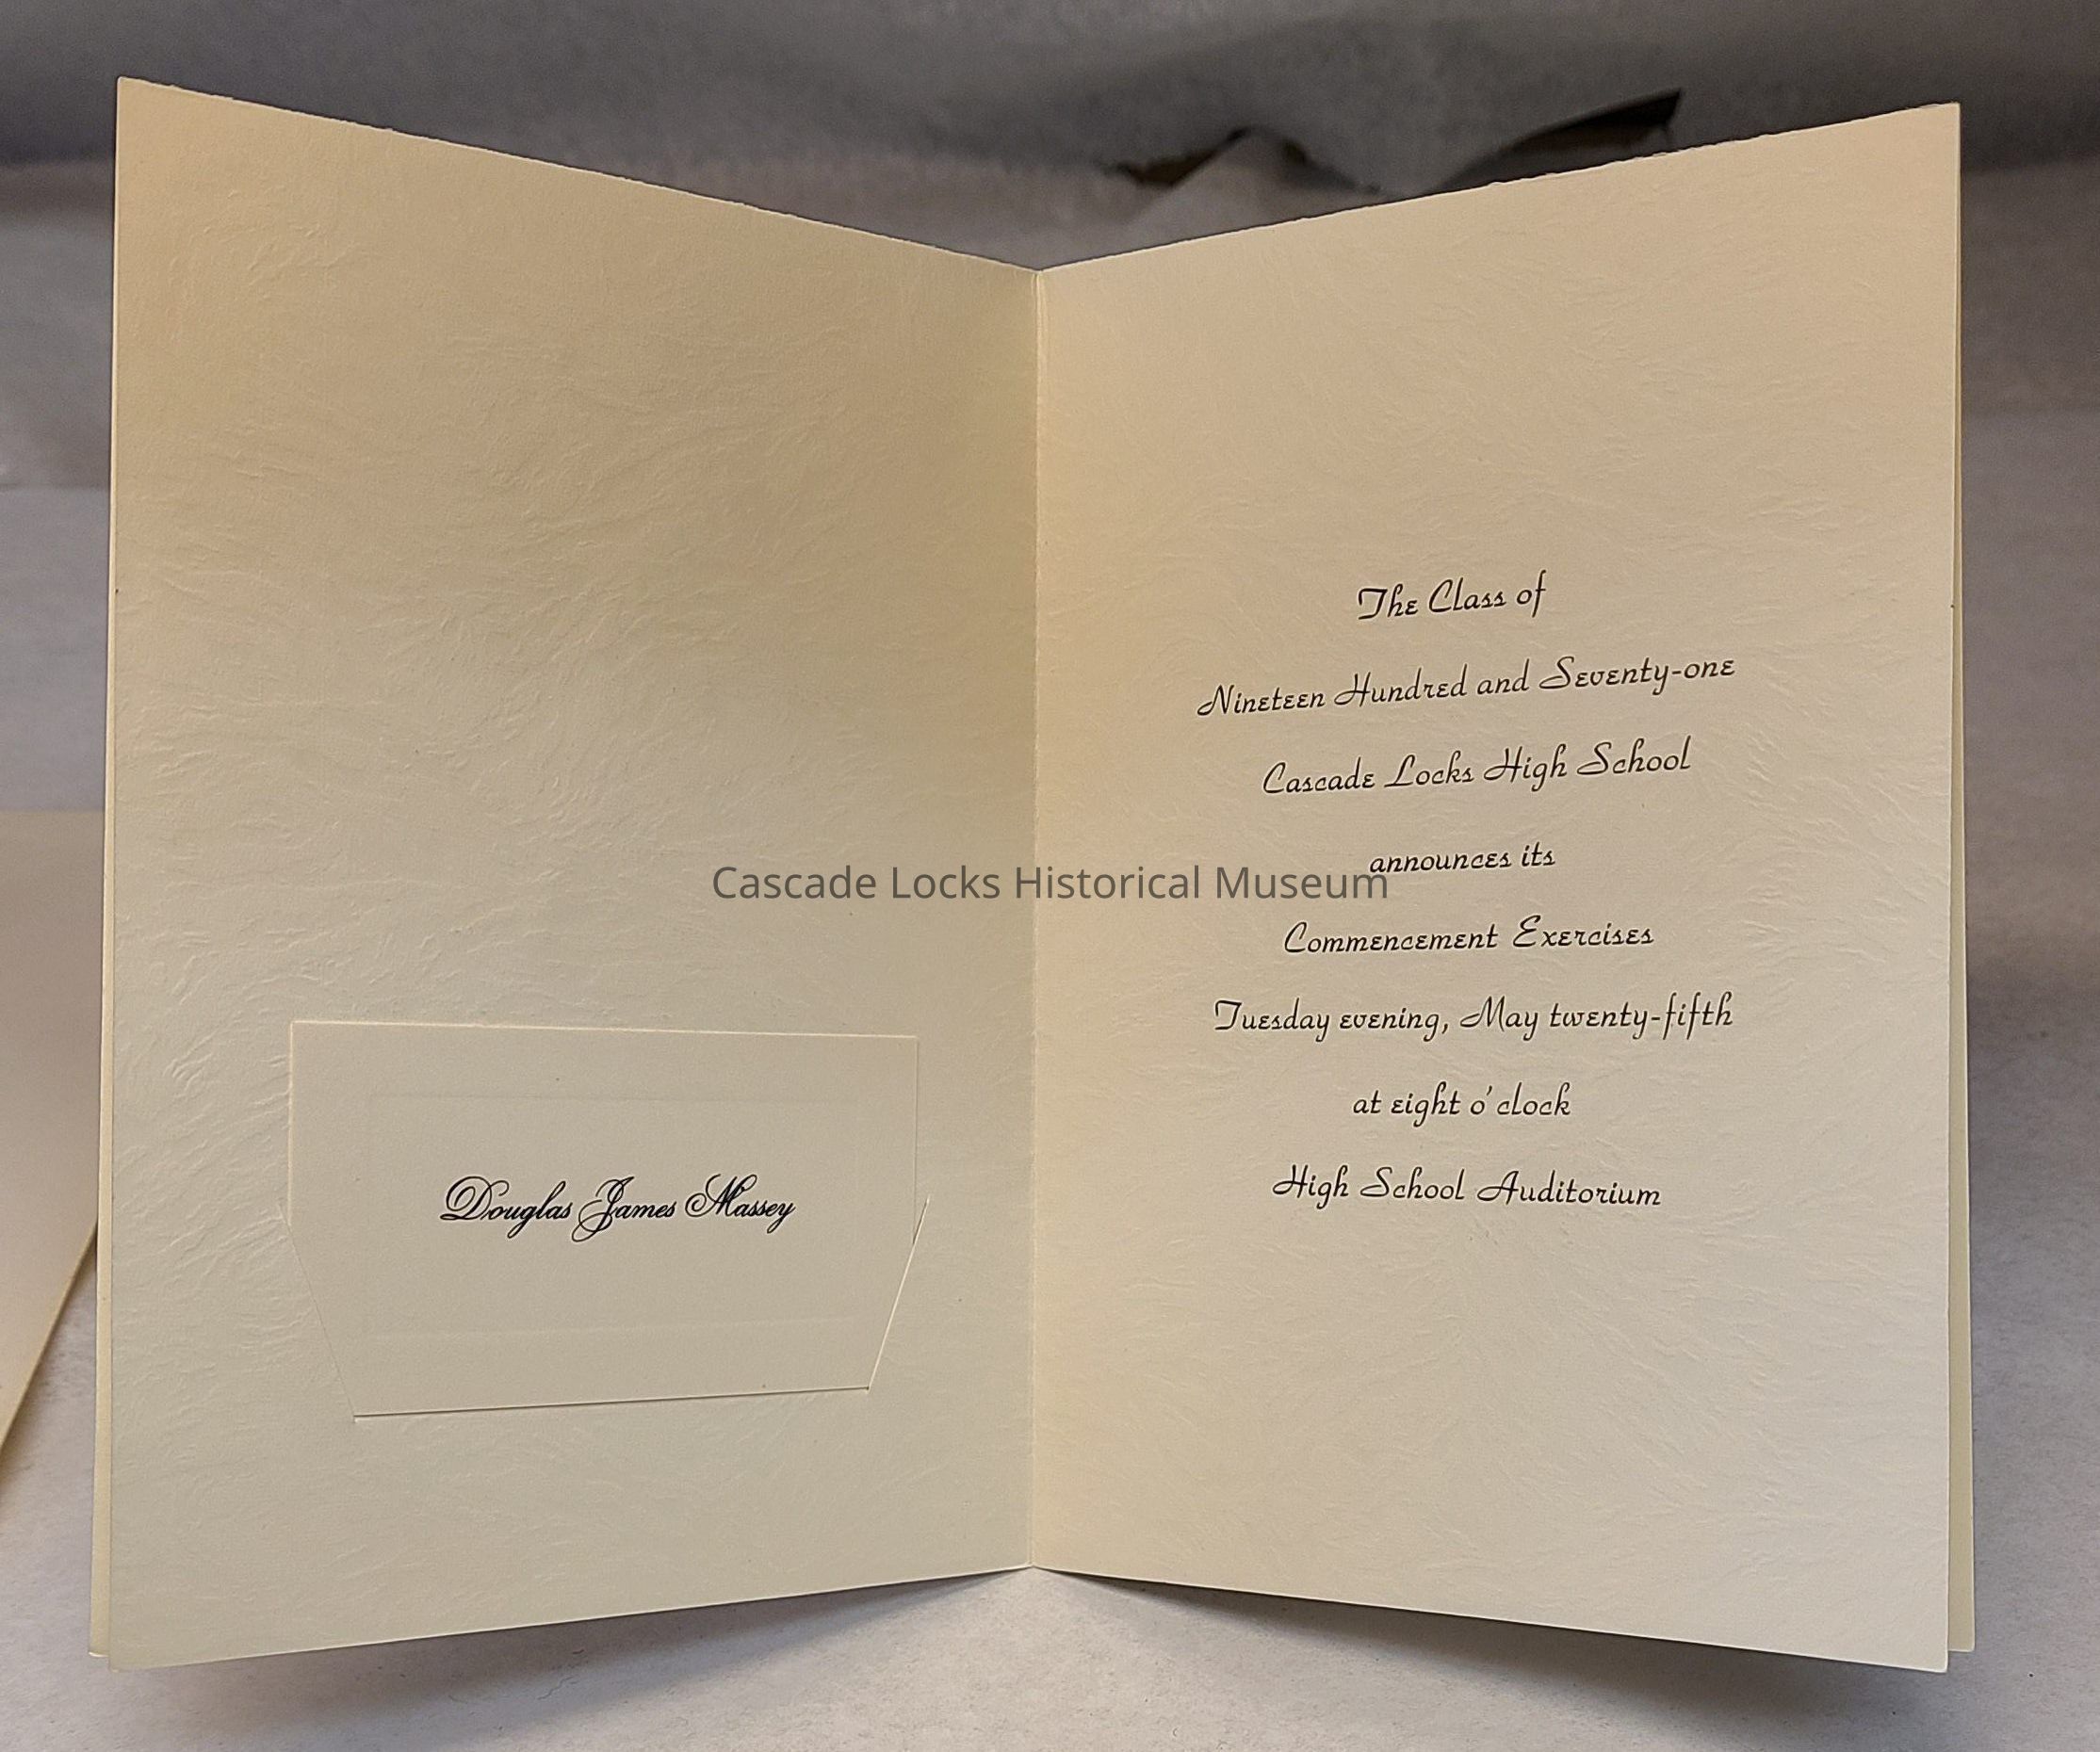 Douglas James Massey
The Class of
Nineteen Hundred and Seventy-one
Cascade Locks High School
announces its
Commencement Exercises
Tuesday evening, May twenty-fifth
at eight o'clock
High School Auditorium
Cascade Locks Historical Museum